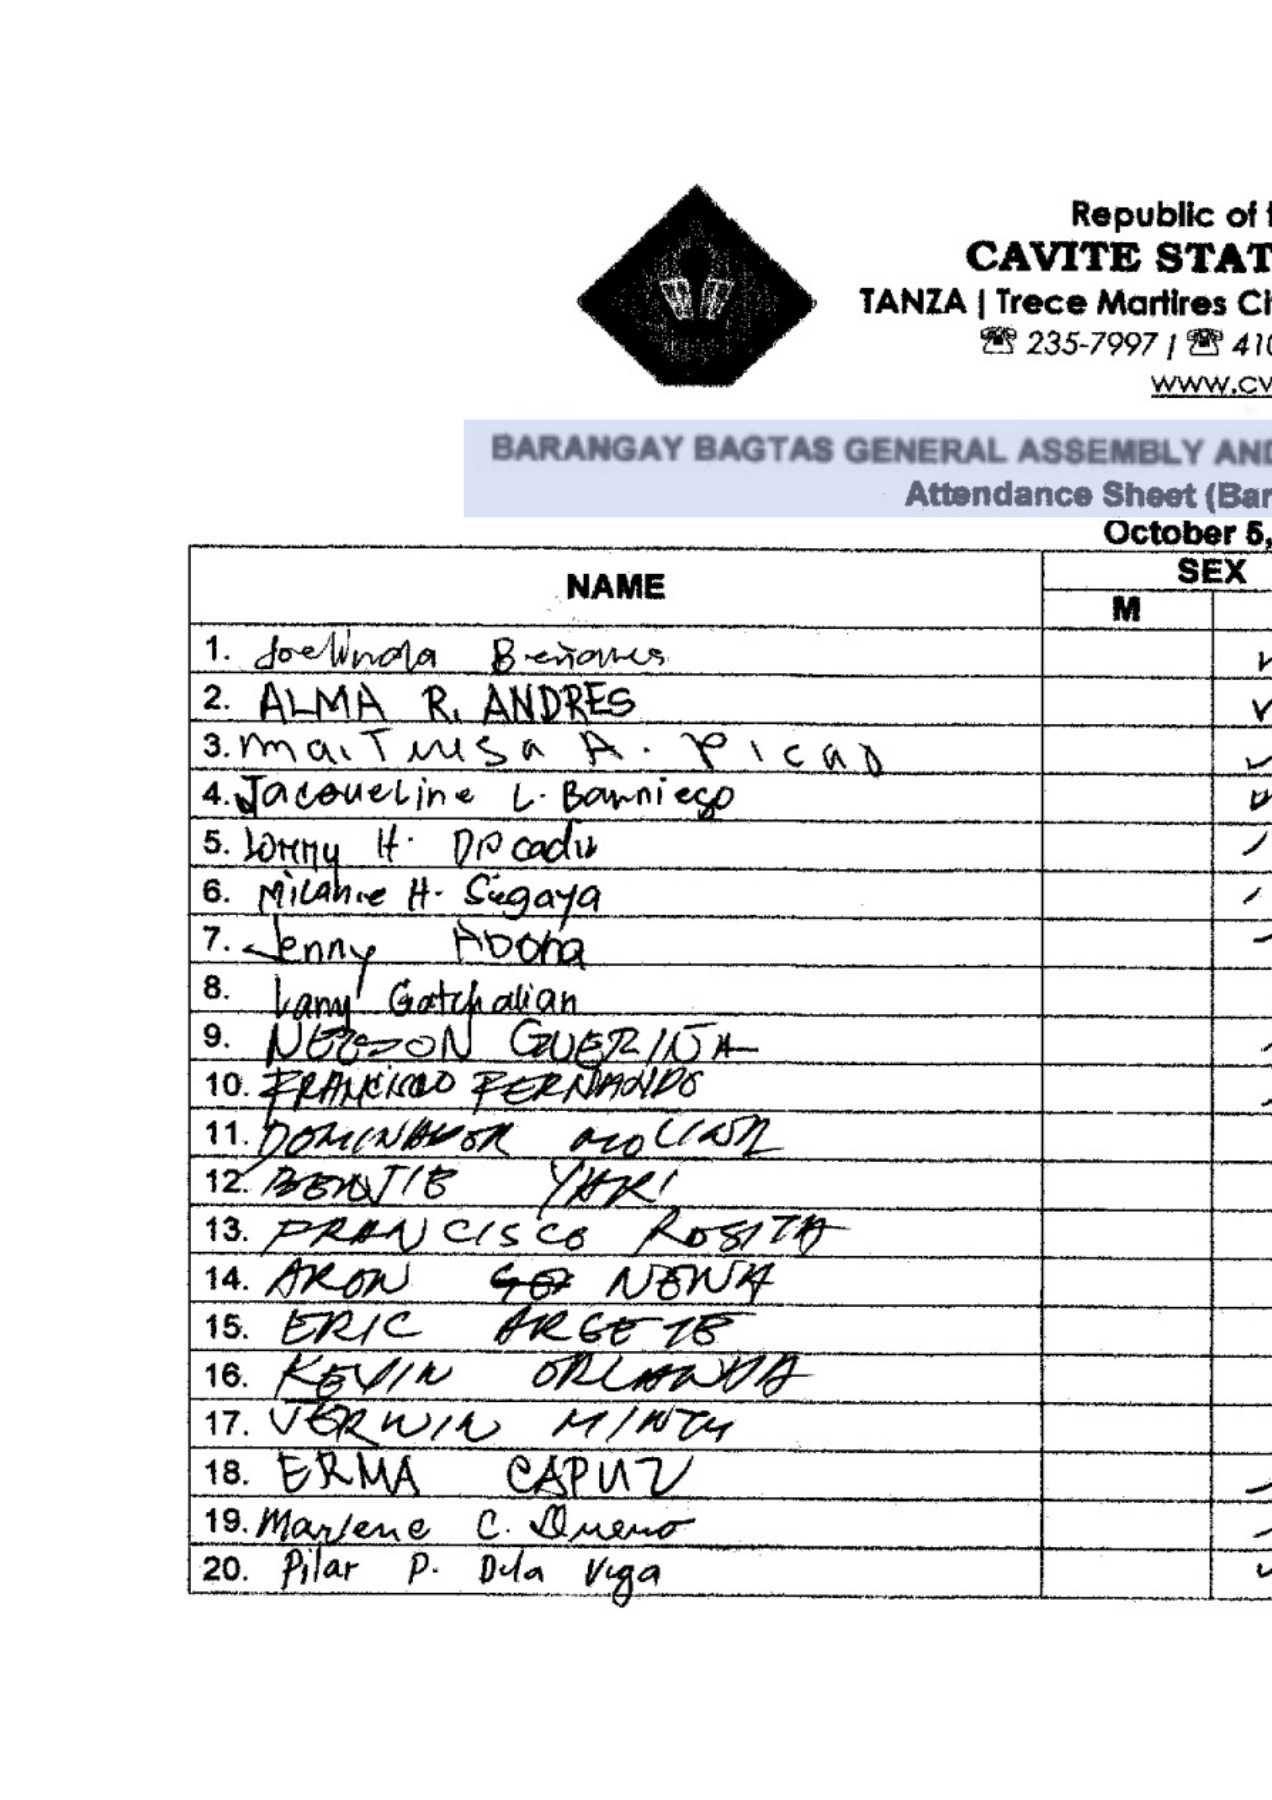 Republic of
CAVITE STAT
TANZA | Trece Martires Ci
☎ 235-7997 | ☎ 410
www.cv
BARANGAY BAGTAS GENERAL ASSEMBLY AND
Attendance Sheet (Bar
October 5,
NAME SEX
M
1. Joelinda Beñares
2. ALMA R. ANDRES
3. A. Picad
4. Jacqueline L. Banniego
5. H.
6. Milanie H. Sugaya
7. Jenny Abona
8. Lany Gatchalian
9. NELSON GUERIÑA
10. FRANCISCO FERNANDO
11. DOMINADOR
12. BENJIE YARI
13. FRANCISCO ROSITA
14. ARON NENA
15. ERIC ARGETE
16. KEVIN ORLANDA
17. JERWIN
18. ERMA CAPUZ
19. Marlene C. Dueno
20. Pilar P. Dela Vega